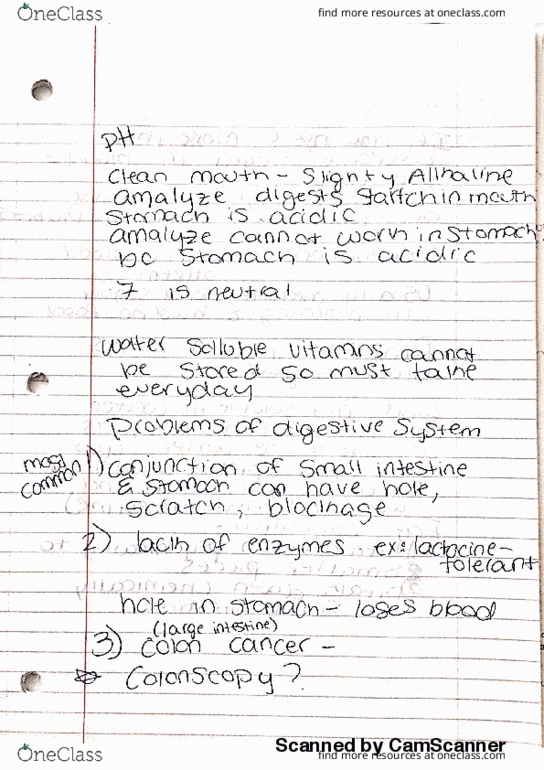 OneClass
find more resources at oneclass.com
pH
Clean mouth - Slighty Alkaline
amalyze digests startch in mouth
Stomach is acidic
amalyze cannot work in stomach
bc Stomach is acidic
7 is neutral
water Solluble vitamins cannot
be stored so must take
everyday
Problems of digestive System
most
common
1) conjunction of small intestine
& stomach can have hole,
scratch, blockage
2) lack of enzymes ex: lactocine-
tolerant
hole in stomach - loses blood
(large intestine)
3) colon cancer -
Colonscopy?
Scanned by CamScanner
OneClass
find more resources at oneclass.com